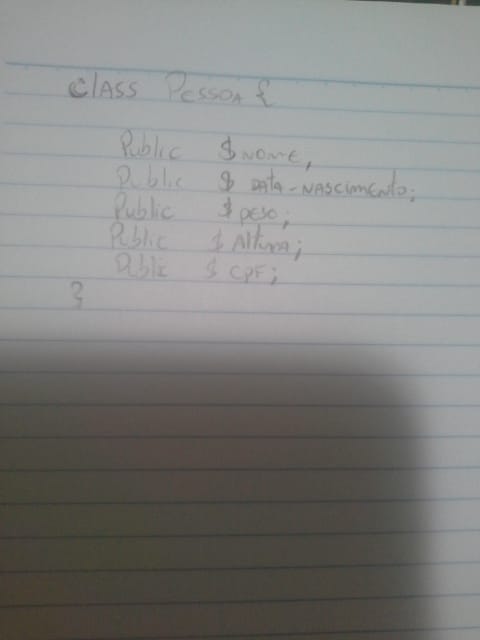 class Pessoa {
Public $ NOME,
Public $ DATA-NASCIMENTO;
Public $ peso;
Public $ Altura;
Public $ CPF;
}